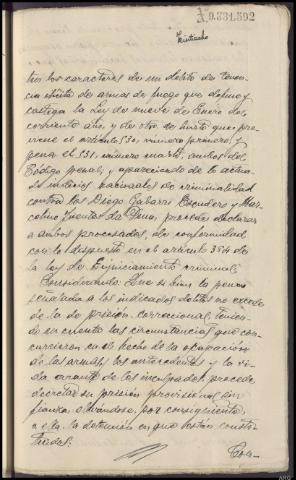 A.9.331.592
ten los caracteres de un delito de tenen-
cia ilícita de armas de fuego que define y
castiga la Ley de nueve de Enero del
corriente año, y de otro de hurto que pre-
viene el artículo 530, número primero y
pena el 531, número cuarto, ambos del
Código penal, y apareciendo de lo actua-
do indicios racionales de criminalidad
contra los Diego Gabarri Escudero y Mar-
celino Fuentes de Pena, procede declarar
a ambos procesados, de conformidad
con lo dispuesto en el artículo 384 de
la Ley de Enjuiciamiento criminal.
Considerando: Que si bien la pena
señalada a los indicados delitos no excede
de la de prisión correccional, tenien-
do en cuenta las circunstancias que con-
currieron en el hecho de la ocupación
de las armas, los antecedentes y la vi-
da errante de los inculpados, procede
decretar su prisión provisional sin
fianza, elevándose, por consiguiente,
a ella la detención en que están consti-
tuidos.
Con-